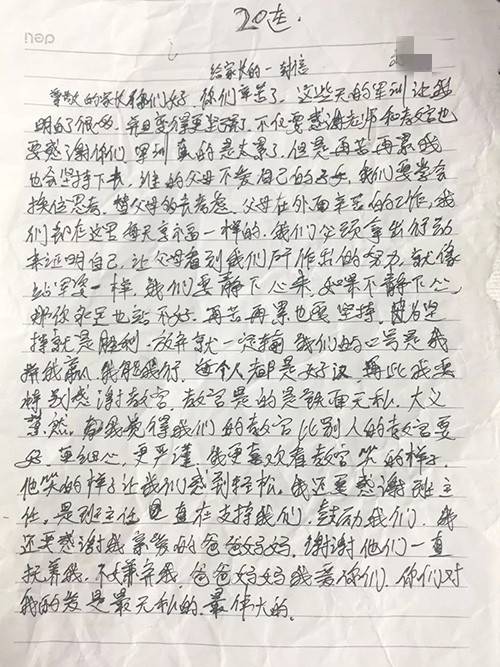 20连.
给家长的一封信
尊敬的家长你们好,你们辛苦了,这些天的军训让我
明白了很多,并且变得更坚强了,不仅要感谢老师和教官也
要感谢你们,军训真的是太累了,但是再苦再累我
也会坚持下去,谁的父母不爱自己的子女,我们要学会
换位思考,替父母的去考虑,父母在外面辛苦的工作,我
们却在这里每天享福一样的,我们必须拿出行动
来证明自己,让父母看到我们所作出的努力,就像
站军姿一样,我们要静下心来,如果不静下心,
那你永远也站不好,再苦再累也要坚持,因为坚
持就是胜利,放弃就一定输,我们的口号是我
拼我赢,我能我行,每个人都是好汉,再此我要
特别感谢教官,教官是的是铁面无私,大义
凛然,但我觉得我们的教官比别人的教官要
好,更细心,更严谨,我更喜欢看教官笑的样子,
他笑的样子让我们感到轻松,我还要感谢班主
任,是班主任一直在支持我们,鼓励我们,我
还要感谢我亲爱的爸爸妈妈,谢谢他们一直
抚养我,不嫌弃我,爸爸妈妈我爱你们,你们对
我的爱是最无私的,最伟大的.